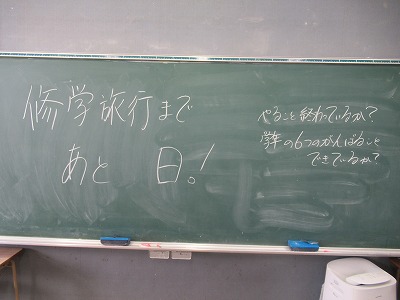 修学旅行まで
あと 日!
やること終わっているか?
学年の6つのがんばること
できているか?